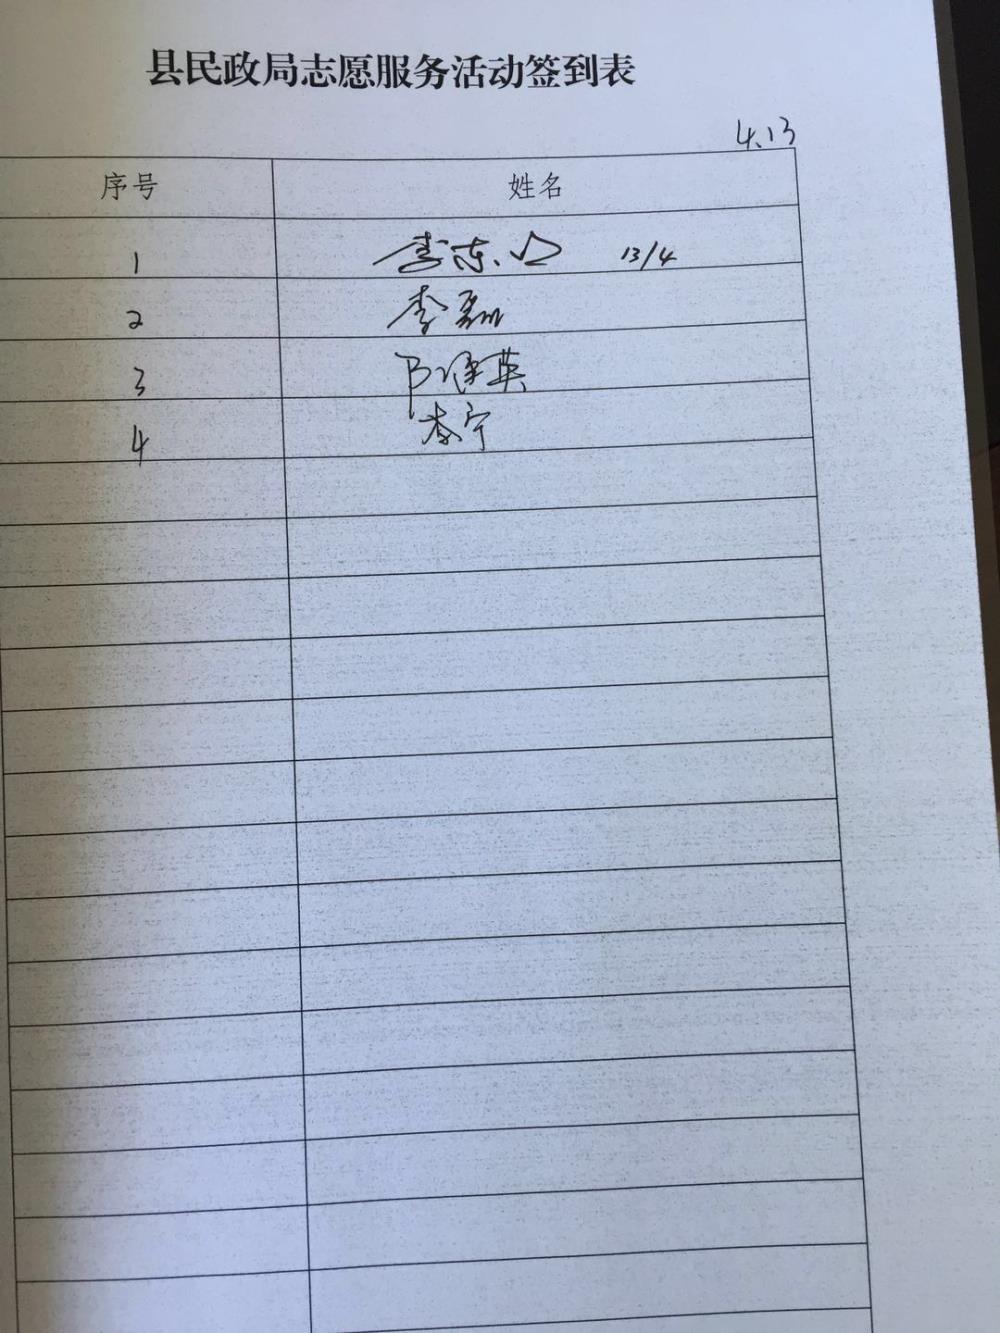 县民政局志愿服务活动签到表
4.13
序号 姓名
1 李东 13/4
2 李磊
3 英
4 李宁